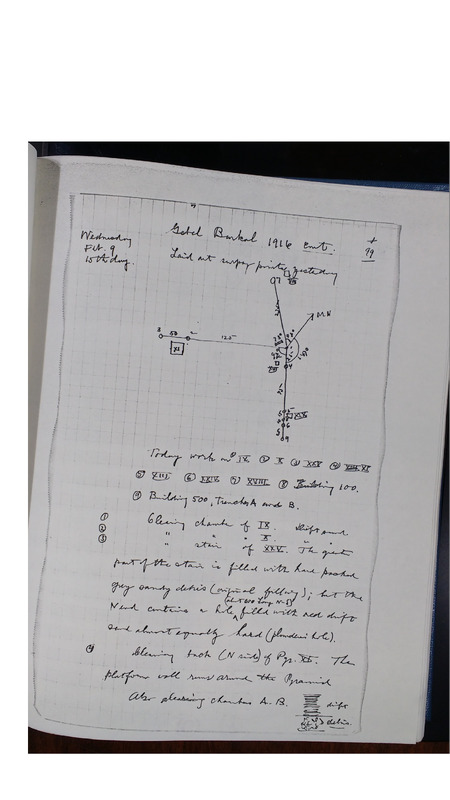 Gebel Barkal 1916 cont.
99
Wednesday
Feb. 9
15th day.
Laid out survey points yesterday
M.N
3 50 2 120
XI
4
6
9
Today work on ① IX ② X ③ XXV ④ XI
⑤ XIII ⑥ XXIV ⑦ XVIII ⑧ Building 100.
⑨ Building 500, Trenches A and B.
① Clearing chamber of IX. drift sand
② " " " X. " "
③ " stair of XXV. The great
part of the stair is filled with hard packed
grey sandy debris (original filling); but the
N end contains a hole filled with red drift
sand almost equally hard (plunderers hole).
④ Clearing back (N side) of Pyr. XI. The
platform wall runs around the Pyramid
Also clearing chambers A. B.
drift
debris.